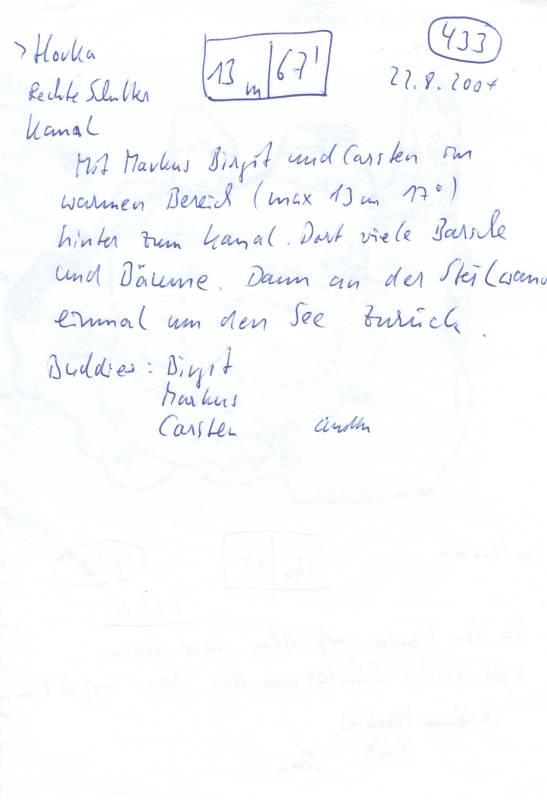 > Horka
13 m 67'
433
22.8.2004
Rechte Schulter
Kanal
Mit Markus Birgit und Carsten im
warmen Bereich (max 13m 17°)
hinter zum Kanal. Dort viele Barsche
und Bäume. Dann an der Steilwand
einmal um den See zurück.
Buddies: Birgit
Markus
Carsten